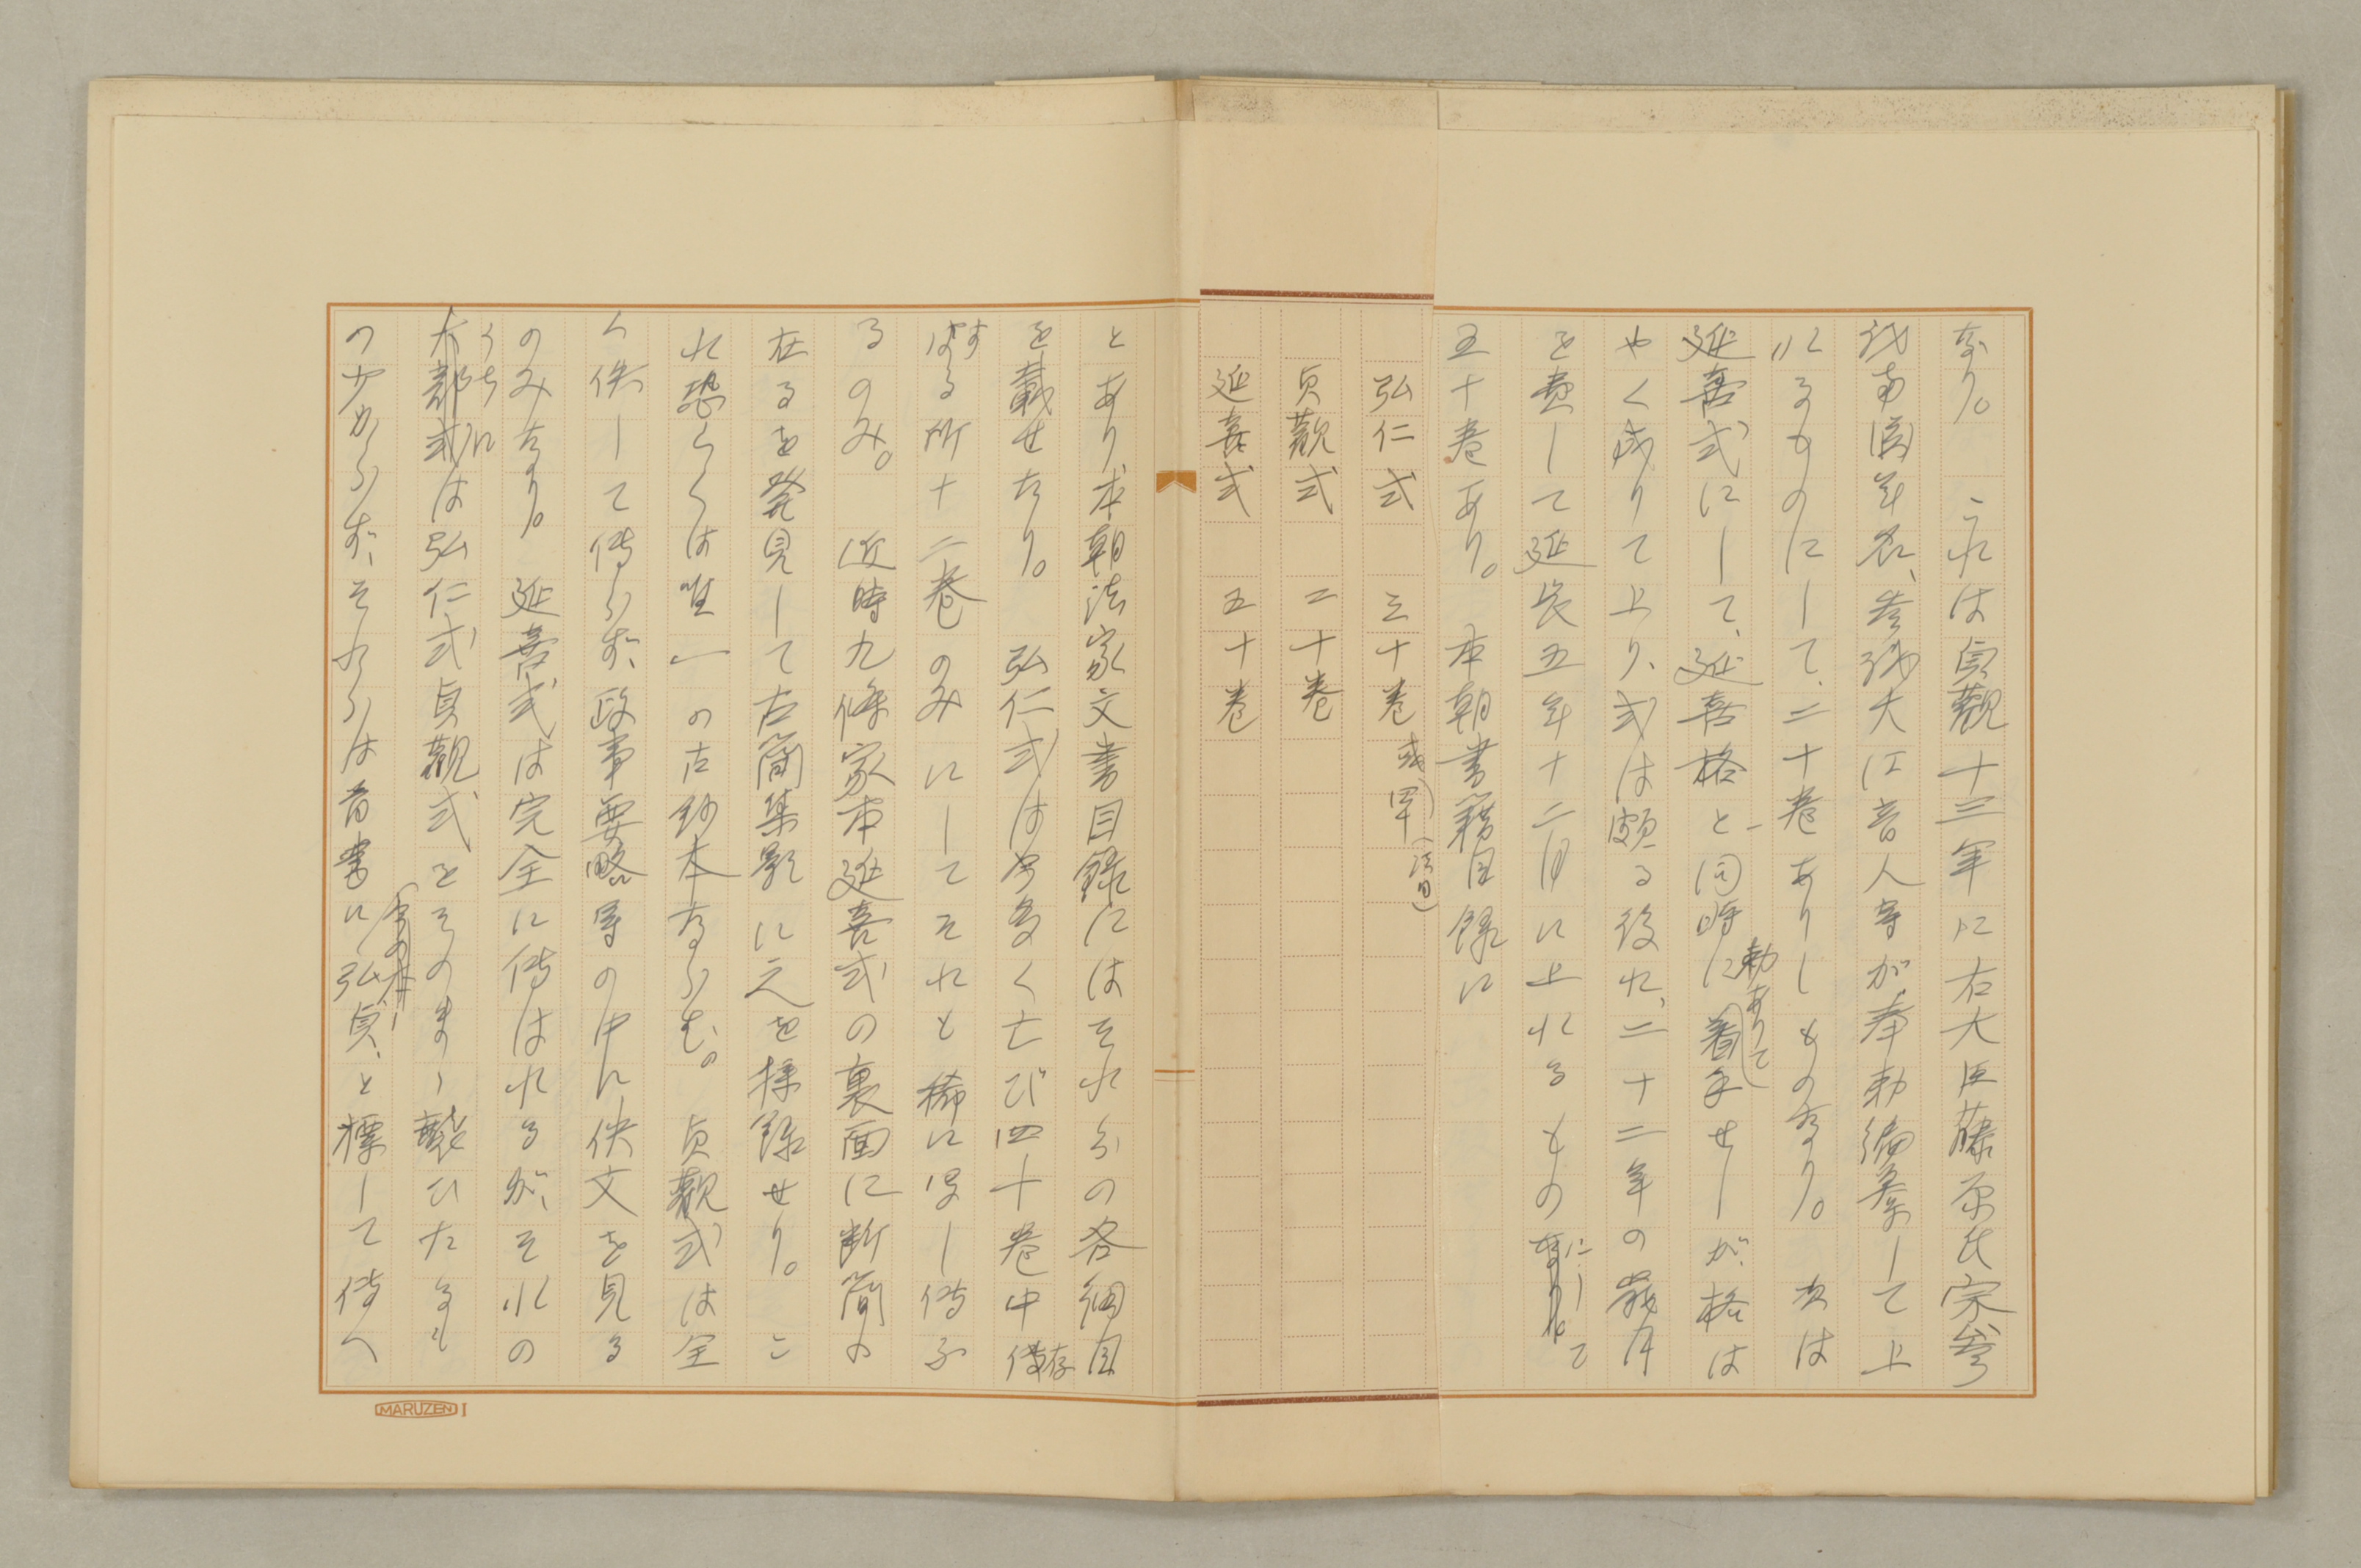 なり。　これは貞觀十三年に右大臣藤原氏宗參
議南淵年名、參議大江音人等が奉勅編纂して上
れるものにして、二十巻ありしものなり。　次は
延喜式にして、延喜格と同時に勅ありて着手せしが、格は
やく成りて上り、式は頗る後れ、二十二年の歳月
を費して延長五年十二月に上れるものにして
五十巻あり。　本朝書籍目録に
弘仁式　三十巻 或四十（法目）
貞觀式　二十巻
延喜式　五十巻
とあり本朝法家文書目録にはそれらの各細目
を載せたり。　弘仁式は今多く亡び四十巻中傳存
する所十二巻のみにしてそれも稀に存し傳ふ
るのみ。　近時九條家本延喜式の裏面に断簡の
在るを発見して古簡集影に之を採録せり。　こ
れ恐らくは唯一の古鈔本ならむ。　貞觀式は全
く佚して傳らず、政事要略等の中に佚文を見る
のみなり。　延喜式は完全に傳はれるが、それの
うちには弘仁式貞觀式をそのまゝ襲ひたるも
の少からず、それらは首書に弘、貞、と標して傳へ
MARUZEN I